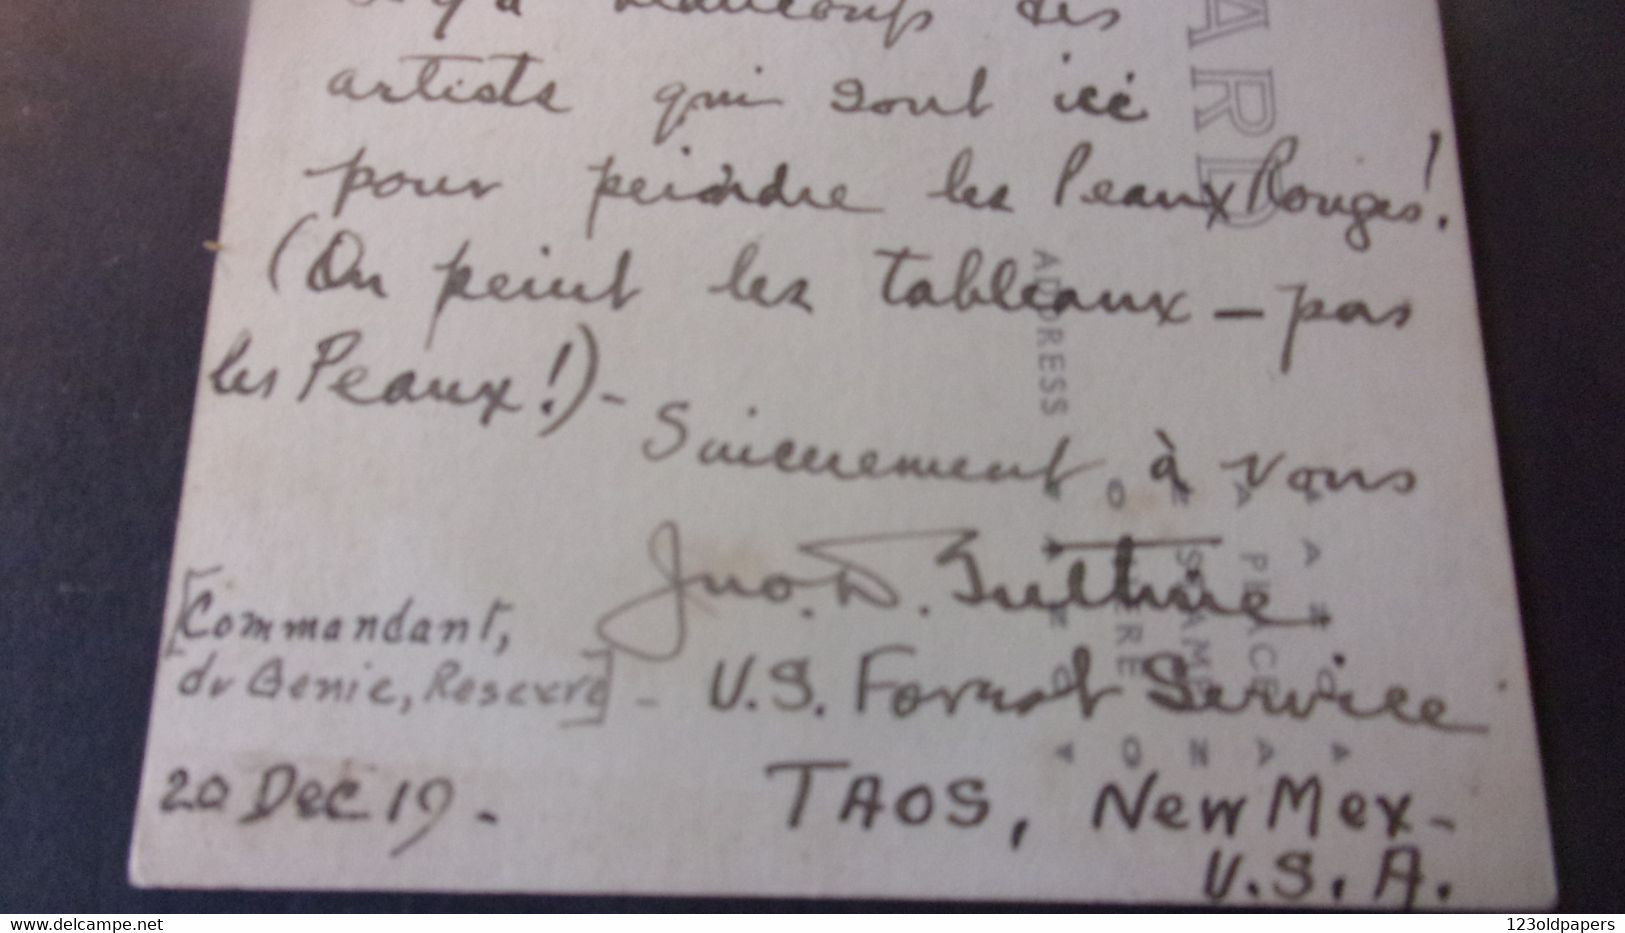 beaucoup des
artists qui sont ici
pour peindre les Peaux Rouges!
(On peint les tableaux — pas
les Peaux!) -
Sincerement à vous
Jno. D. Guthrie
[Commandant,
du Genie, Reserve] - U.S. Forest Service
20 Dec 19. - TAOS, New Mex -
U.S.A.
ARD
ADDRESS
PLACE
STAMP
HERE
delcampe.net
123oldpapers